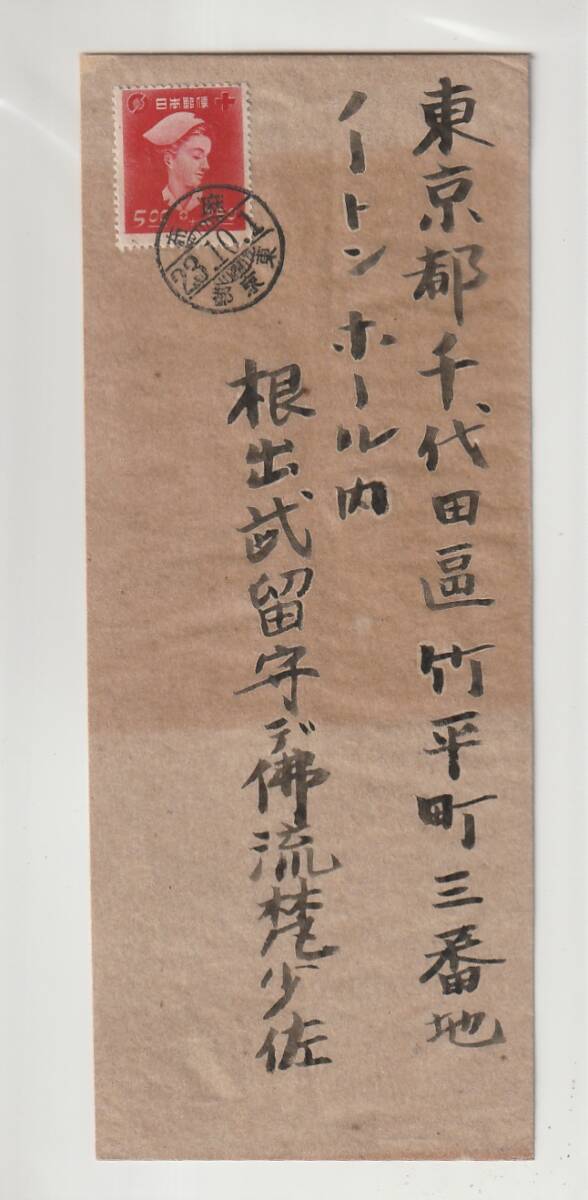 東京都千代田區竹平町三番地
ノートンホール内
根出武留守デ佛流麓少佐
日本郵便
5.00
23.10.1
東京